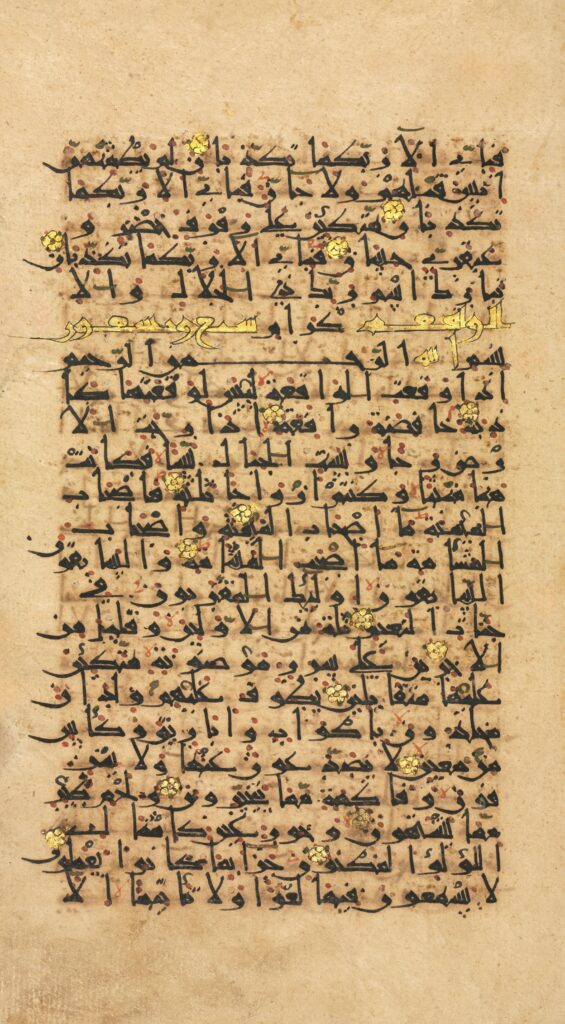 فباي الا ربكما تكذبان لم يطمثهن
انس قبلهم ولا جان فباي الا ربكما
تكذبان متكئين على رفرف خضر و
عبقري حسان فباي الا ربكما تكذبان
تبارك اسم ربك ذي الجلال والا
الواقعة كرام سبع وتسعون
بسم الله الرحمن الرحيم
اذا وقعت الواقعة ليس لوقعتها كا
ذبة خافضة رافعة اذا رجت الا
رض رجا وبست الجبال بسا فكانت
هبا منبثا وكنتم ازواجا ثلثة فاصحاب
الميمنة ما اصحاب الميمنة واصحاب
المشئمة ما اصحب المشئمة والسابقون
السابقون اولئك المقربون في
جنات النعيم ثلة من الاولين وقليل من
الاخرين على سرر موضونة متكئين
عليها متقابلين يطوف عليهم ولدان
مخلدون باكواب واباريق وكاس
من معين لا يصدعون عنها ولا ينز
فون وفاكهة مما يتخيرون ولحم طير
مما يشتهون وحور عين كامثال
اللؤلؤا المكنون جزا بما كانوا يعملون
لا يسمعون فيها لغوا ولا تاثيما الا